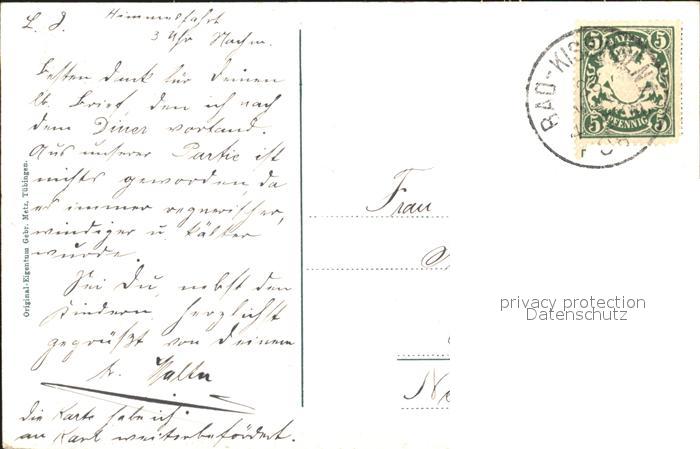 L. J. Himmelfahrt
3 Uhr Nachm.
Besten Dank für Deinen
lb. Brief, den ich nach
dem Diner vorfand.
Aus unserer Partie ist
nichts geworden, da
es immer regnerischer,
windiger u. kälter
wurde.
Sei Du, nebst den
Kindern, herzlichst
gegrüßt von Deinem
tr.
Die Karte habe ich
an Karl weiterbefördert.
Original-Eigentum Gebr. Metz, Tübingen.
BAYERN
5 5
5 PFENNIG 5
BAD-KISSINGEN
Frau
privacy protection
Datenschutz